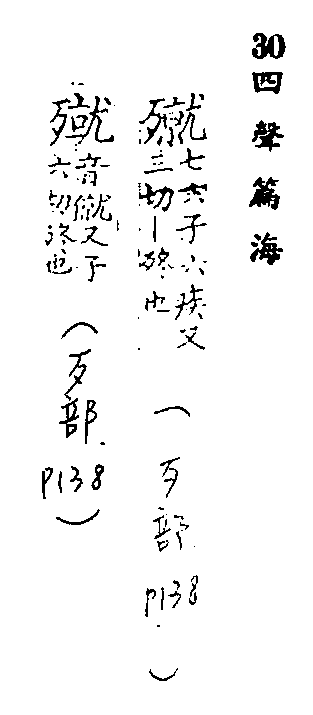 30四聲篇海
殧七六子六疾又三切丨終也（歹部P138）
殧音僦又子六切終也（歹部P138）